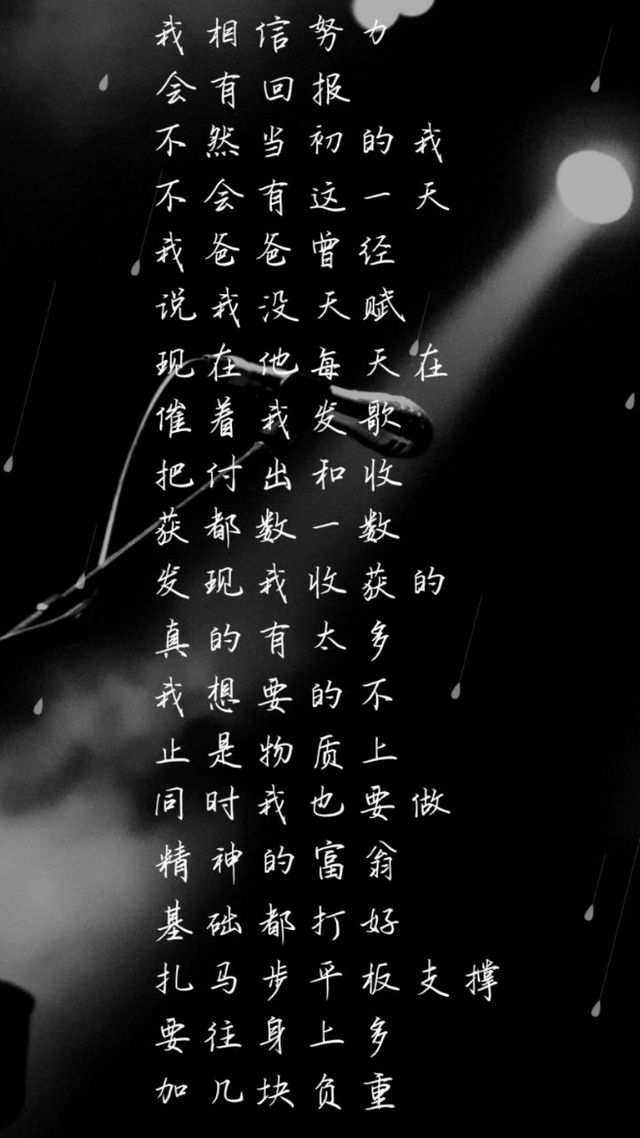 我相信努力
会有回报
不然当初的我
不会有这一天
我爸爸曾经
说我没天赋
现在他每天在
催着我发歌
把付出和收
获都数一数
发现我收获的
真的有太多
我想要的不
止是物质上
同时我也要做
精神的富翁
基础都打好
扎马步平板支撑
要往身上多
加几块负重